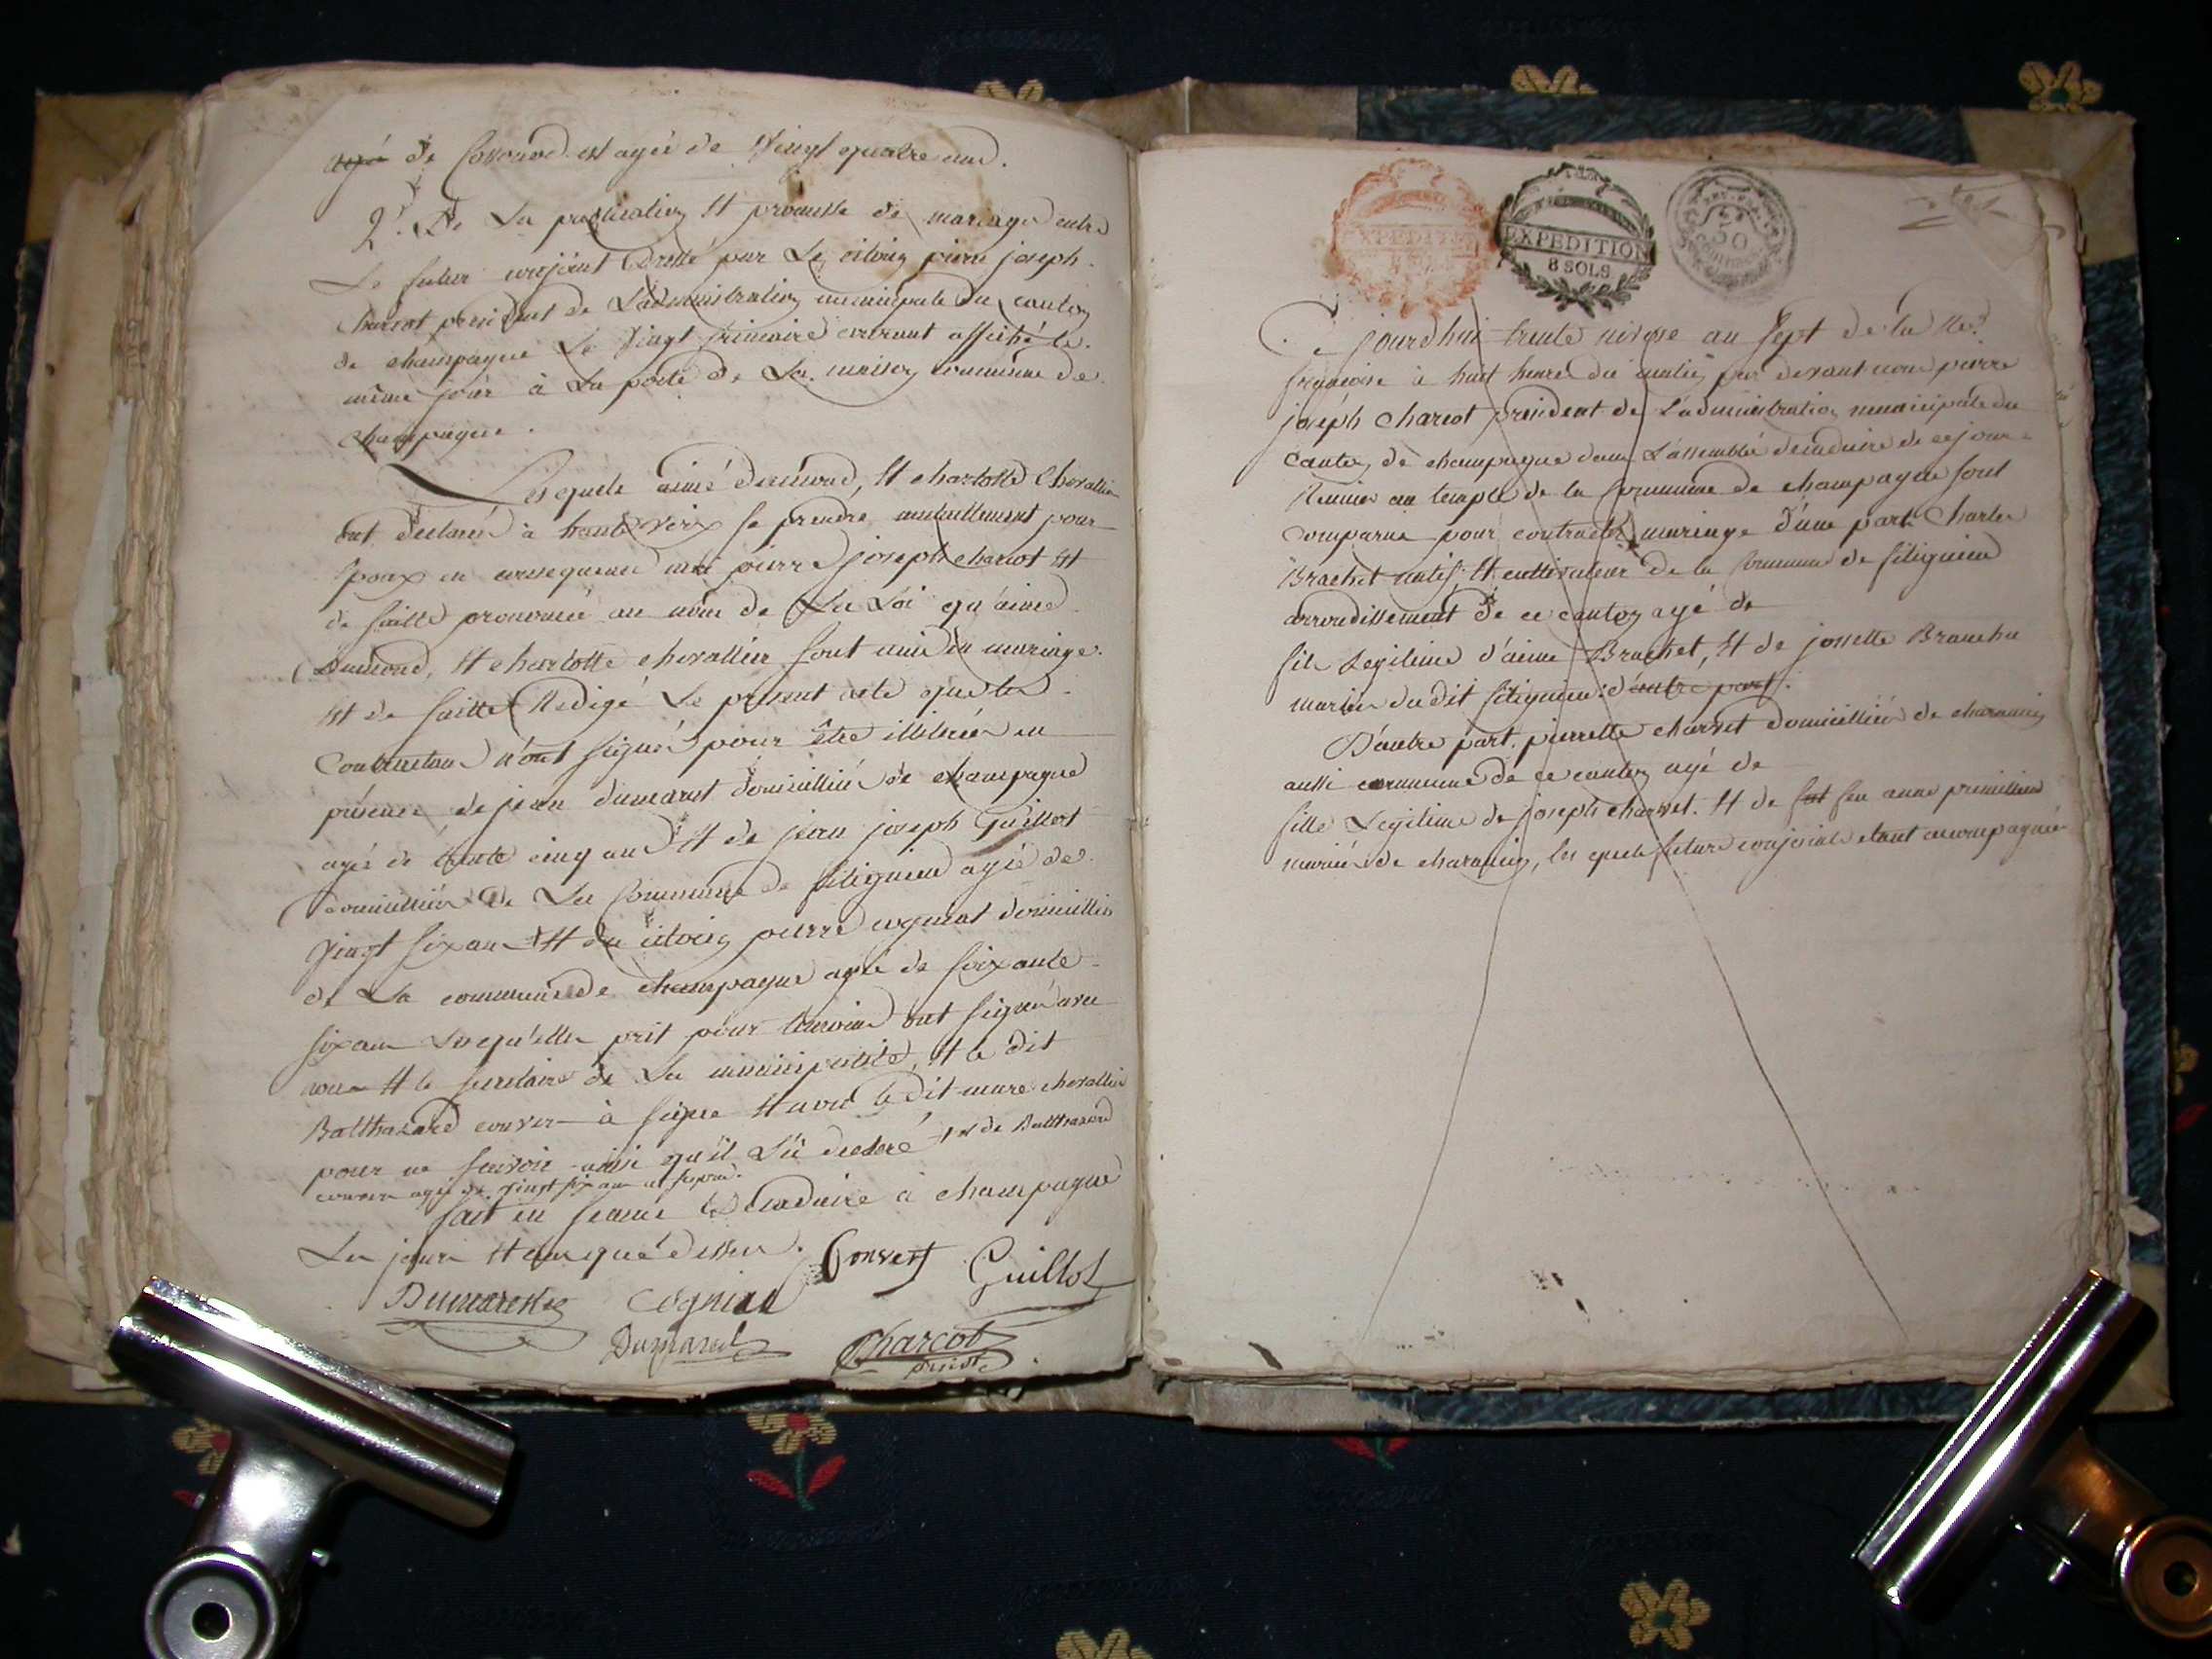 agé de est agée de Vingt quatre ans.
2°. De La publication Et promesse de mariage entre
Le futur conjoint dressé par Le citoien pierre joseph
Charcot president de L'administration municipale du canton
de champagne Le Vingt frimaire courant affiché le
même jour à La porte de La maison commune de
champagne.
Les quels aimé Et charlotte Chevallier
ont declarés à haute voix se prendre mutuellement pour
Epoux en consequence moi pierre joseph charcot Et
de suitte prononcé au nom de La Loi qu'aimé
Et charlotte chevallier sont unis en mariage.
Et de suitte Redigé Le present acte que les
Contractans n'ont signés pour être illiterés en
présence de jean dumarest domicillié de champagne
agés de trente cinq ans Et de jean joseph Guillot
domicillié de La Commune de filignieu agé de
Vingt six ans Et du citoien pierre cogniat domicillié
de La commune de champagne agé de soixante
six ans Les quelles prit pour temoins ont signés avec
nous Et le secretaire de La municipalité, Et le dit
Balthazard à signé Et non le dit chevallier
pour ne savoir ainsi qu'il L'à declaré Et de Balthazard
agé de vingt six ans
fait en seance decadaire à champagne
Les jours Et an que dessus. Convert Guillot
Cogniat
Dumarest Charcot
presidt
EXPEDITION
8 SOLS
EXPEDITION
8 SOLS
50
Ce jourdhui trente nivose an sept de la Rep.
françoise à huit heures du matin par devant nous pierre
joseph Charcot president de L'administration municipale du
canton de champagne dans L'assemblée decadaire de ce jour
Reunies au temple de la Commune de champagne sont
comparus pour contracter mariage d'une part Charles
Brachet natif Et cultivateur de la Commune de filignieu
arrondissement de ce canton agé de
fils Legitime d'aimé Brachet, Et de josette
mariés du dit filignieu d'autre part.
D'autre part. pierrette charvet domicilliée de charancin
aussi commune de ce canton agé de
fille Legitime de joseph charvet. Et de fut feu anne
mariés de charancin, les quels futurs conjoints etant accompagnés